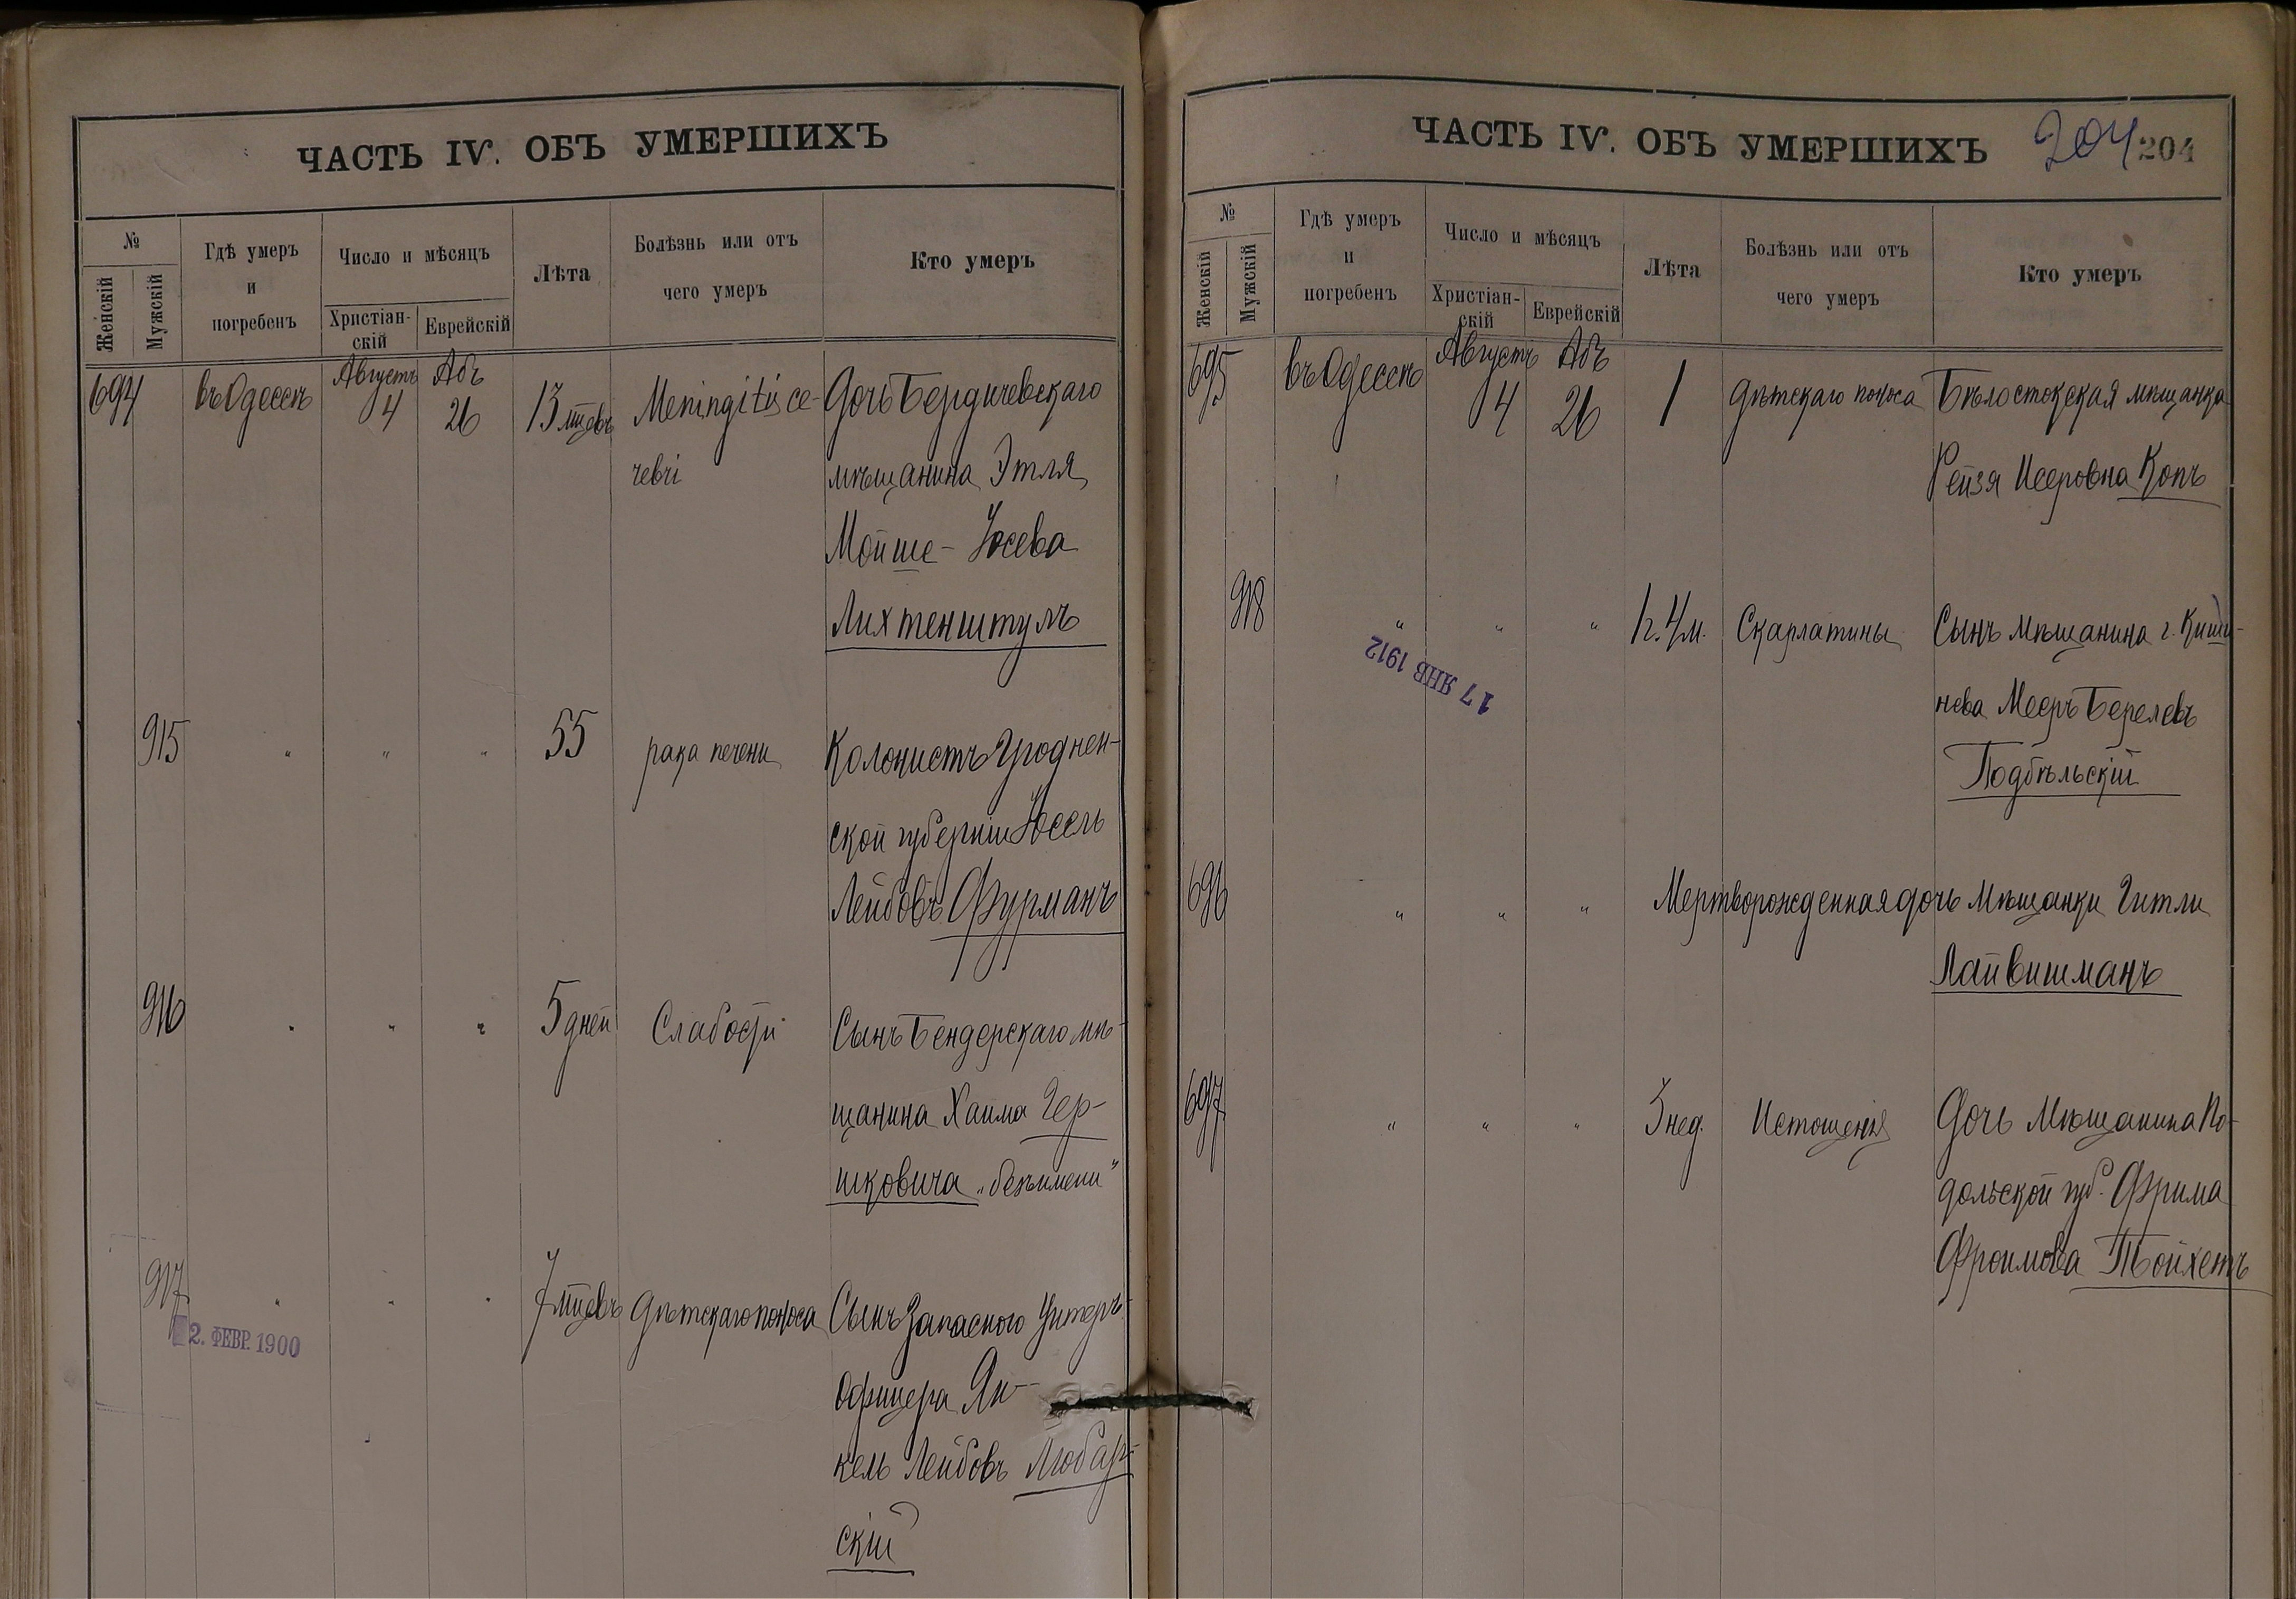 ЧАСТЬ IV. ОБЪ УМЕРШИХЪ
№
Женскій
Мужскій
Гдѣ умеръ
и
погребенъ
Число и мѣсяцъ
Христіан-
скій
Еврейскій
Лѣта
Болѣзнь или отъ
чего умеръ
Кто умеръ
694 въ Одессѣ Августъ 4 Абъ 26 13 мцевъ Meningitis ce- Дочь Бердичевскаго
мѣщанина Этля
Мойше-Іосева
Лихтенштулъ
915 " " " 55 рака печени Колонистъ Гроднен-
ской губерніи Іосель
Лейбовъ Фурманъ
916 " " " 5 дней Слабости Сынъ Бендерскаго мѣ-
щанина Хаима Гер-
шковича „безъ имени"
917 " " " 7 мцевъ дѣтскаго поноса Сынъ Запасного Унтеръ-
Офицера Ян-
кель Лейбовъ Любар-
скій
2. ФЕВР. 1900
ЧАСТЬ IV. ОБЪ УМЕРШИХЪ 204 204
№
Женскій
Мужскій
Гдѣ умеръ
и
погребенъ
Число и мѣсяцъ
Христіан-
скій
Еврейскій
Лѣта
Болѣзнь или отъ
чего умеръ
Кто умеръ
695 въ Одессѣ Августъ 4 Абъ 26 1 дѣтскаго поноса Бѣлостокская мѣщанка
Рейзя Исеровна Копъ
918 " " " 1 г. 4 м. Скарлатины Сынъ мѣщанина г. Киши-
нева Мееръ Берелевъ
Подбѣльскій
17 ЯНВ 1912
696 " " " Мертворожденная дочь мѣщанки Гитли
Лайвишманъ
697 " " " 3 нед. Истощенія Дочь Мѣщанина По-
дольской губ. Фрима
Фроимова Тойхетъ